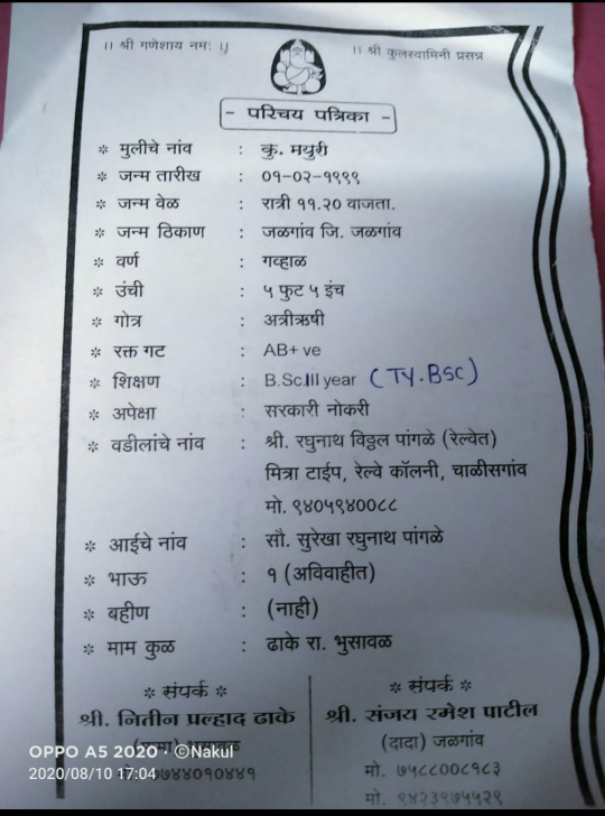 ।। श्री गणेशाय नमः ।।
।। श्री कुलस्वामिनी प्रसन्न
- परिचय पत्रिका -
* मुलीचे नांव : कु. मयुरी
* जन्म तारीख : ०१-०२-१९९९
* जन्म वेळ : रात्री ११.२० वाजता.
* जन्म ठिकाण : जळगांव जि. जळगांव
* वर्ण : गव्हाळ
* उंची : ५ फुट ५ इंच
* गोत्र : अत्रीऋषी
* रक्त गट : AB+ ve
* शिक्षण : B.Sc.III year (TY.BSC)
* अपेक्षा : सरकारी नोकरी
* वडीलांचे नांव : श्री. रघुनाथ विठ्ठल पांगळे (रेल्वेत)
मित्रा टाईप, रेल्वे कॉलनी, चाळीसगांव
मो. ९४०५९४००८८
* आईचे नांव : सौ. सुरेखा रघुनाथ पांगळे
* भाऊ : १ (अविवाहीत)
* बहीण : (नाही)
* माम कुळ : ढाके रा. भुसावळ
* संपर्क *
श्री. नितीन प्रल्हाद ढाके
* संपर्क *
श्री. संजय रमेश पाटील
(दादा) जळगांव
मो. ७५८८००८९८३
मो. ९४२३९७५५२९
OPPO A5 2020 · ©Nakul
2020/08/10 17:04